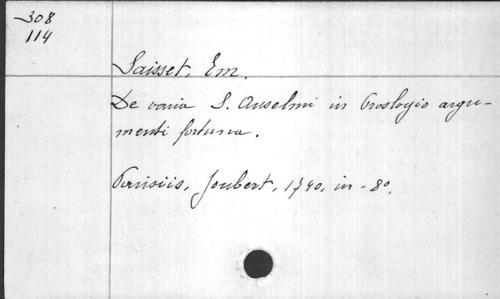 308
114
Saisset, Em.
De varia S. Anselmi in Proslogio argu-
menti fortuna.
Parisiis, Joubert, 1840, in-8º.